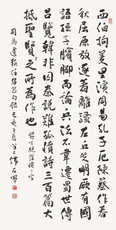 西伯拘羑里演周易孔子厄陳蔡作春
秋屈原放逐著離騷左丘失明厥有國
語孫子臏腳而論兵法不韋遷蜀世傳
呂覽韓非囚秦說難孤憤詩三百篇大
抵賢聖之所為作也